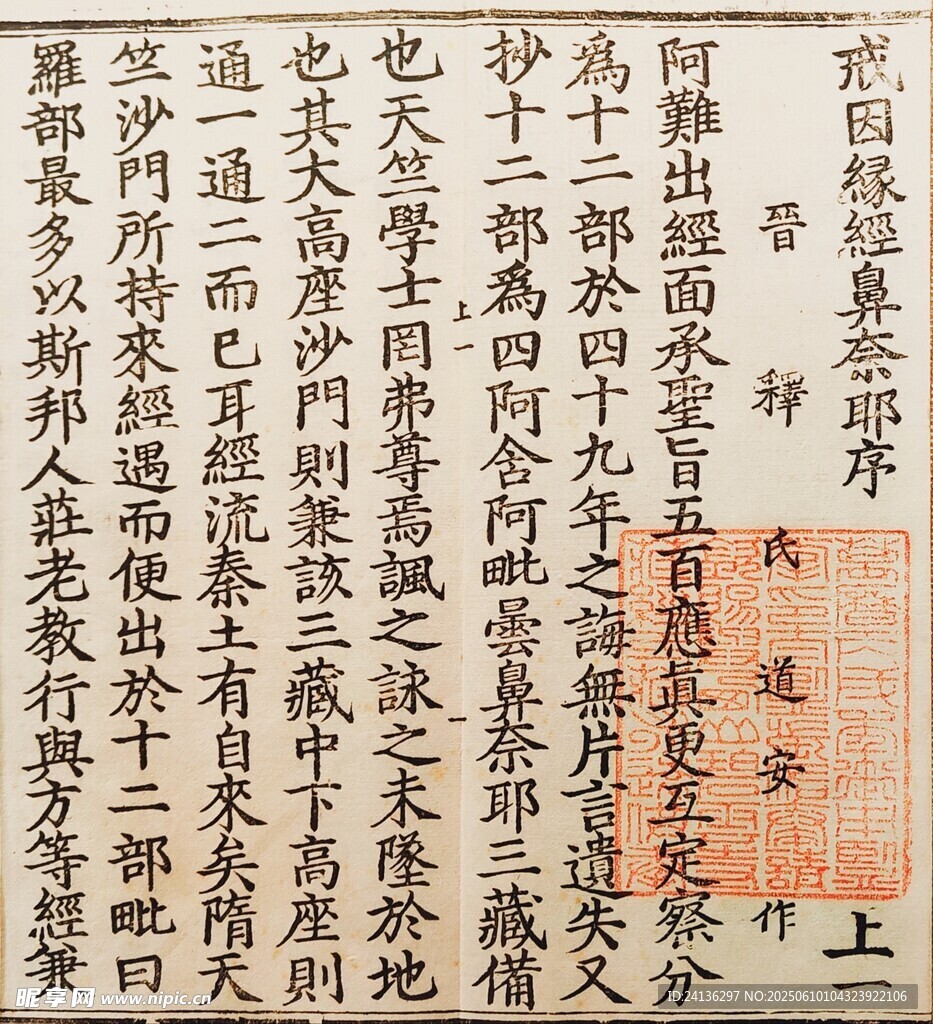 戒因縁經鼻奈耶序 上一
晉釋氏道安作
阿難出經面承聖旨五百應眞更互定察分
爲十二部於四十九年之誨無片言遺失又
抄十二部爲四阿含阿毗曇鼻奈耶三藏備
上一 一
也天竺學士罔弗尊焉諷之詠之未墜於地
也其大高座沙門則兼該三藏中下高座則
通一通二而已耳經流秦土有自來矣隋天
竺沙門所持來經遇而便出於十二部毗曰
羅部最多以斯邦人莊老教行與方等經兼
昵享网 www.nipic.cn
ID:24136297 NO:20250610104323922106